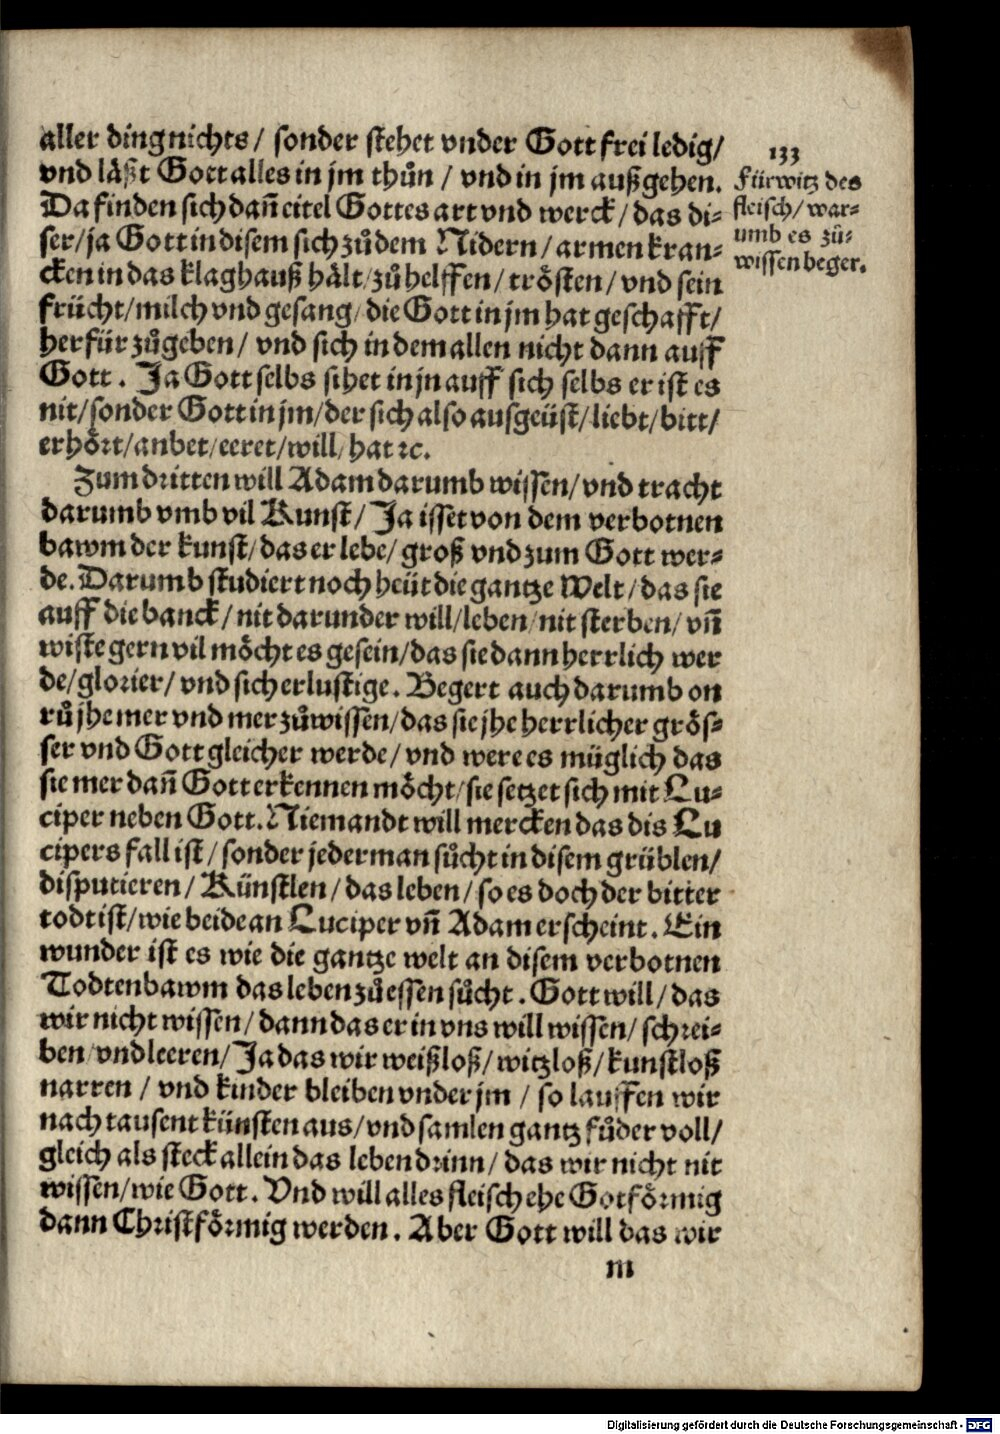 aller ding nichts / sonder stehet vnder Gott frei ledig /
vnd läßt Gott alles in jm thůn / vnd in jm außgehen.
Da finden sich dañ eitel Gottes art vnd werck / das di⸗
ser / ja Gott in disem sich zů dem Nidern / armen kran⸗
cken in das klaghauß hält / zů helffen / trösten / vnd sein
frücht / milch vnd gesang / die Gott in jm hat geschafft /
herfür zůgeben / vnd sich in dem allen nicht dann auff
Gott. Ja Gott selbs sihet in jn auff sich selbs er ist es
nit / sonder Gott in jm / der sich also ausgeüst / liebt / bitt /
erhört / anbet / eeret / will / hat ꝛc.
133
Fürwitz des
fleisch / war⸗
umb es zů⸗
wissen beger.
Zum dritten will Adam darumb wissen / vnd tracht
darumb vmb vil Kunst / Ja isset von dem verbotnen
bawm der kunst / das er lebe / groß vnd zum Gott wer⸗
de. Darumb studiert noch heüt die gantze Welt / das sie
auff die banck / nit darunder will / leben / nit sterben / vñ
wiste gern vil möcht es gesein / das sie dann herrlich wer
de / glorier / vnd sich erlustige. Begert auch darumb on
rů jhe mer vnd mer zůwissen / das sie jhe herrlicher grös⸗
ser vnd Gott gleicher werde / vnd were es müglich das
sie mer dañ Gott erkennen möcht / sie setzet sich mit Lu⸗
ciper neben Gott. Niemandt will mercken das dis Lu
cipers fall ist / sonder jederman sůcht in disem grüblen /
disputieren / Künstlen / das leben / so es doch der bitter
todt ist / wie beide an Luciper vñ Adam erscheint. Ein
wunder ist es wie die gantze welt an disem verbotnen
Todtenbawm das leben zůessen sůcht. Gott will / das
wir nicht wissen / dann das er in vns will wissen / schrei⸗
ben vnd leeren / Ja das wir weißloß / witzloß / kunstloß
narren / vnd kinder bleiben vnder jm / so lauffen wir
nach tausent künsten aus / vnd samlen gantz fůder voll /
gleich als steck allein das leben drinn / das wir nicht nit
wissen / wie Gott. Vnd will alles fleisch ehe Gotförmig
dann Christförmig werden. Aber Gott will das wir
m
Digitalisierung gefördert durch die Deutsche Forschungsgemeinschaft - DFG